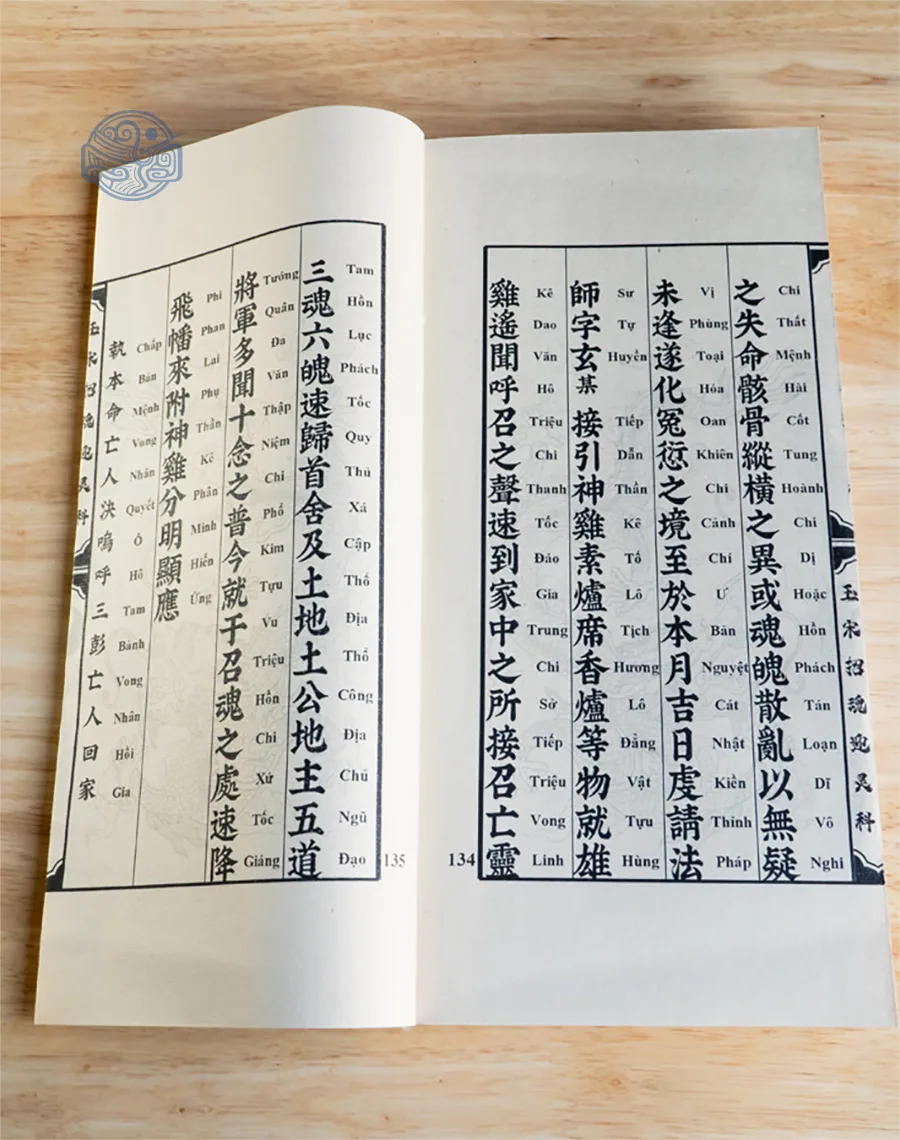 玉宋招魂科
之失命骸骨縱橫之異或魂魄散亂以無疑
Chi Thất Mệnh Hài Cốt Tung Hoành Chi Dị Hoặc Hồn Phách Tán Loạn Dĩ Vô Nghi
未逢遂化冤愆之境至於本月吉日虔請法
Vị Phùng Toại Hóa Oan Khiên Chi Cảnh Chí Ư Bản Nguyệt Cát Nhật Kiền Thỉnh Pháp
師字玄某接引神雞素爐席香爐等物就雄
Sư Tự Huyền Tiếp Dẫn Thần Kê Tố Lô Tịch Hương Lô Đẳng Vật Tựu Hùng
雞遙聞呼召之聲速到家中之所接召亡靈
Kê Dao Văn Hô Triệu Chi Thanh Tốc Đáo Gia Trung Chi Sở Tiếp Triệu Vong Linh
134
三魂六魄速歸首舍及土地土公地主五道
Tam Hồn Lục Phách Tốc Quy Thủ Xá Cập Thổ Địa Thổ Công Địa Chủ Ngũ Đạo
將軍多聞十念之普今就于召魂之處速降
Tướng Quân Đa Văn Thập Niệm Chi Phổ Kim Tựu Vu Triệu Hồn Chi Xứ Tốc Giáng
飛幡來附神雞分明顯應
Phi Phan Lai Phụ Thần Kê Phân Minh Hiển Ứng
執本命亡人決嗚呼三彭亡人回家
Chấp Bản Mệnh Vong Nhân Quyết Ô Hô Tam Bành Vong Nhân Hồi Gia
玉宋招魂科
135